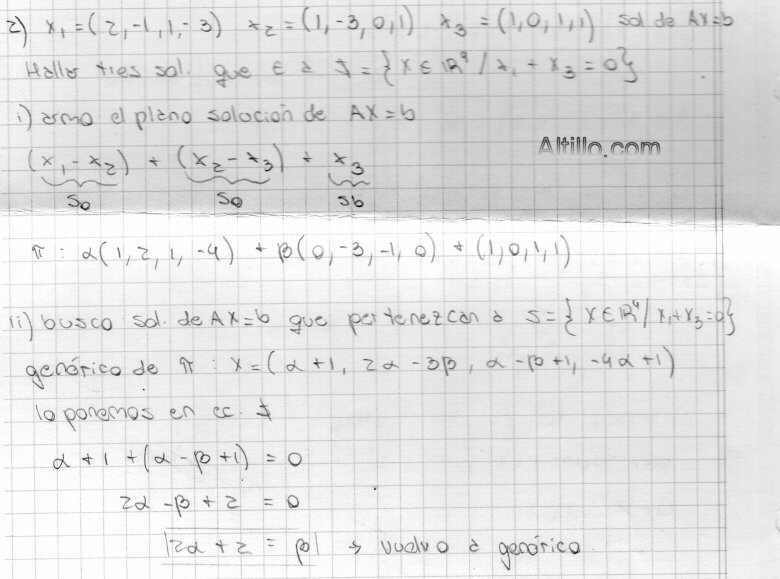 2) x₁ = (2, -1, 1, -3) x₂ = (1, -3, 0, 1) x₃ = (1, 0, 1, 1) sol de AX=b
Hallar tres sol. que ∈ a S = {X ∈ ℝ⁴ / x₁ + x₃ = 0}
i) armo el plano solocion de AX=b
Altillo.com
(x₁ - x₂) + (x₂ - x₃) + x₃
S₀ S₀ Sb
π : α(1, 2, 1, -4) + β(0, -3, -1, 0) + (1, 0, 1, 1)
ii) busco sol. de AX=b que pertenezcan a S = {X ∈ ℝ⁴ / x₁ + x₃ = 0}
genérico de π : X = (α+1, 2α - 3β, α - β + 1, -4α + 1)
lo ponemos en ec. S
α + 1 + (α - β + 1) = 0
2α - β + 2 = 0
|2α + 2 = β| → vuelvo a genérico.